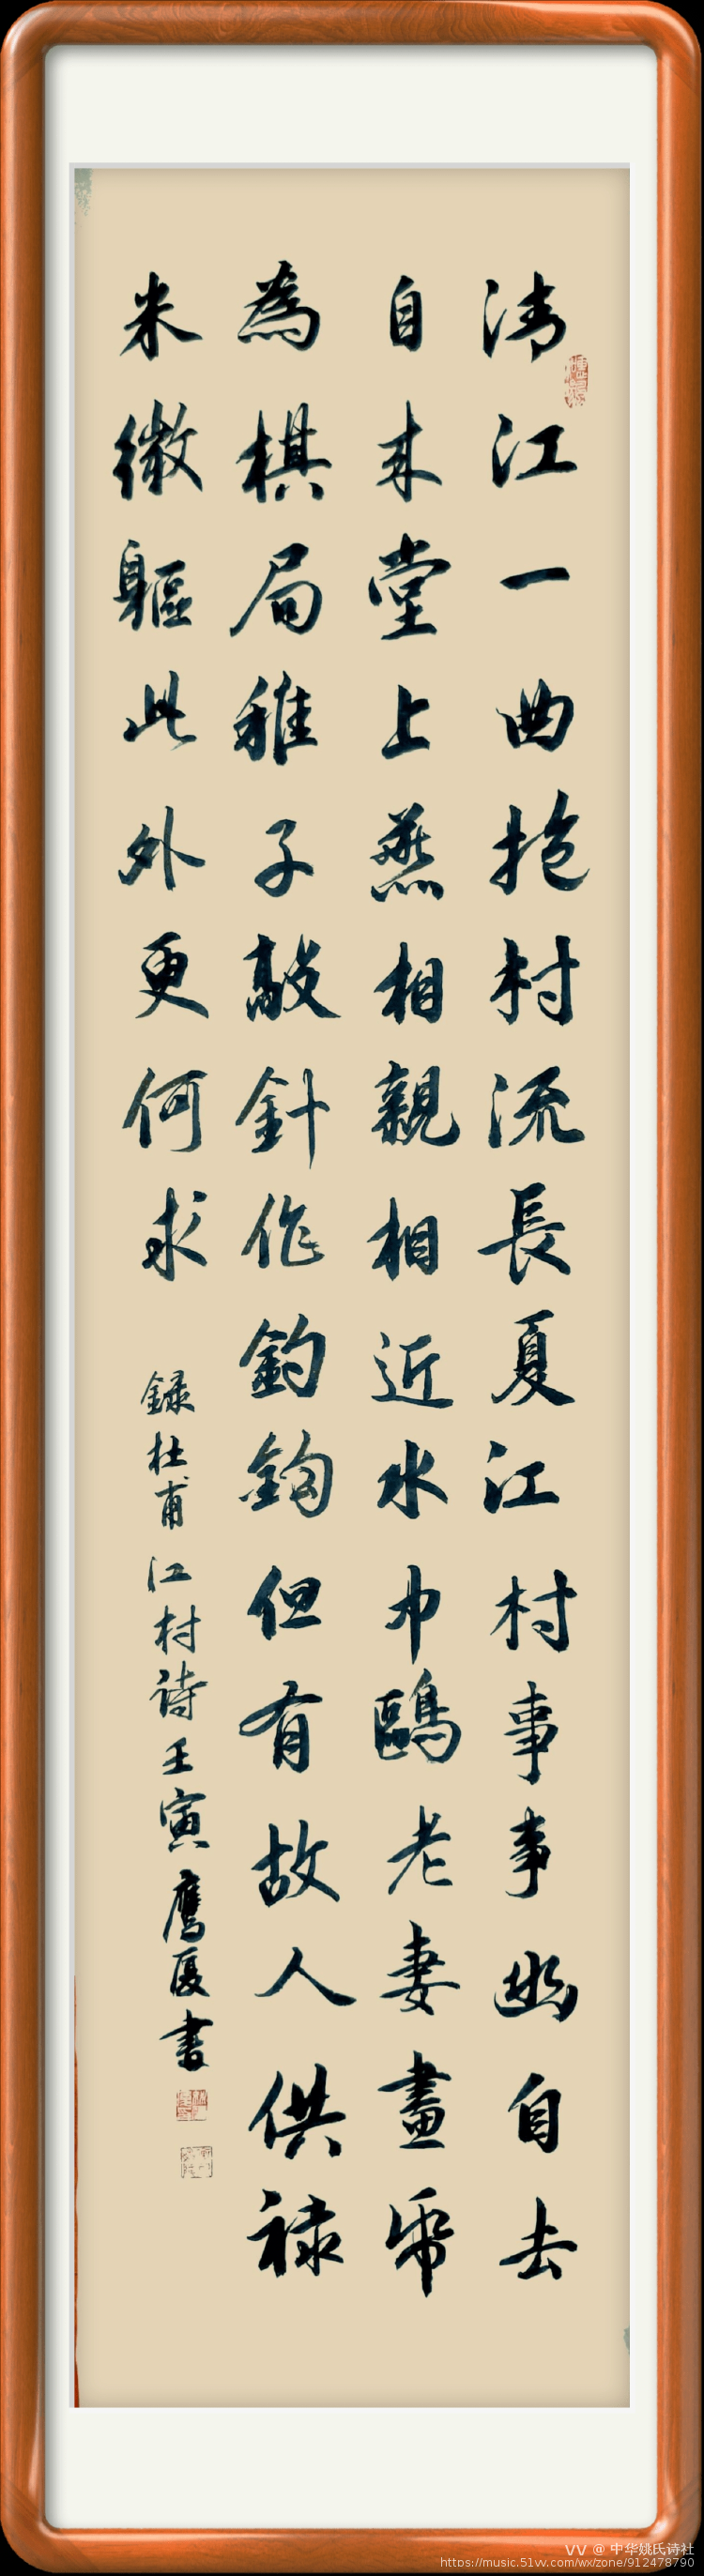 清江一曲抱村流長夏江村事事幽自去
自来堂上燕相親相近水中鷗老妻畫帋
為棋局稚子敲針作釣鈎但有故人供禄
米微軀此外更何求 録杜甫江村詩壬寅鷹厦書
VV @ 中华姚氏诗社
https://music.51vv.com/wx/zone/912478790